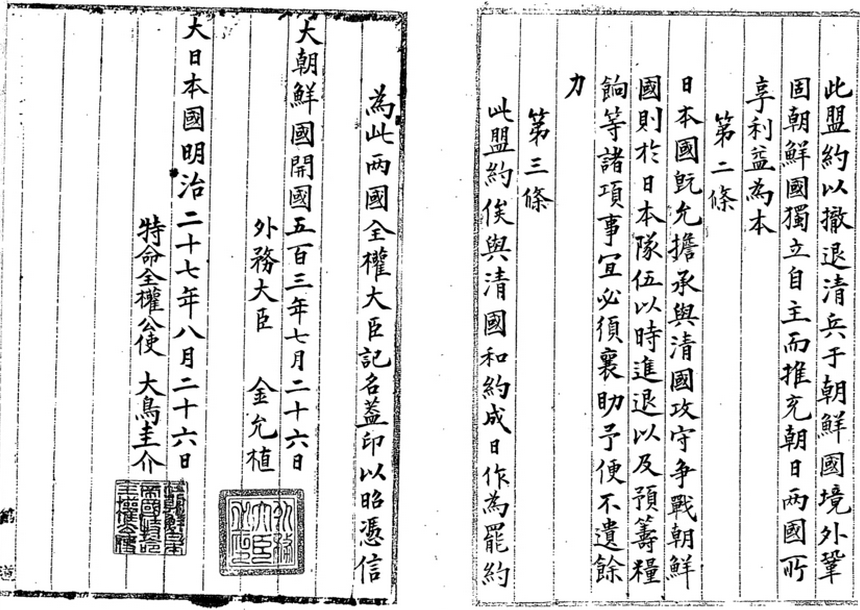 此盟約以撤退清兵于朝鮮國境外鞏
固朝鮮國獨立自主而推充朝日兩國所
享利益為本
第二條
日本國旣允擔承與清國攻守爭戰朝鮮
國則於日本隊伍以時進退以及預籌糧
餉等諸項事宜必須襄助予便不遺餘
力
第三條
此盟約俟與清國和約成日作為罷約
為此兩國全權大臣記名蓋印以昭憑信
大朝鮮國開國五百三年七月二十六日
外務大臣 金允植
大日本國明治二十七年八月二十六日
特命全權公使 大鳥圭介